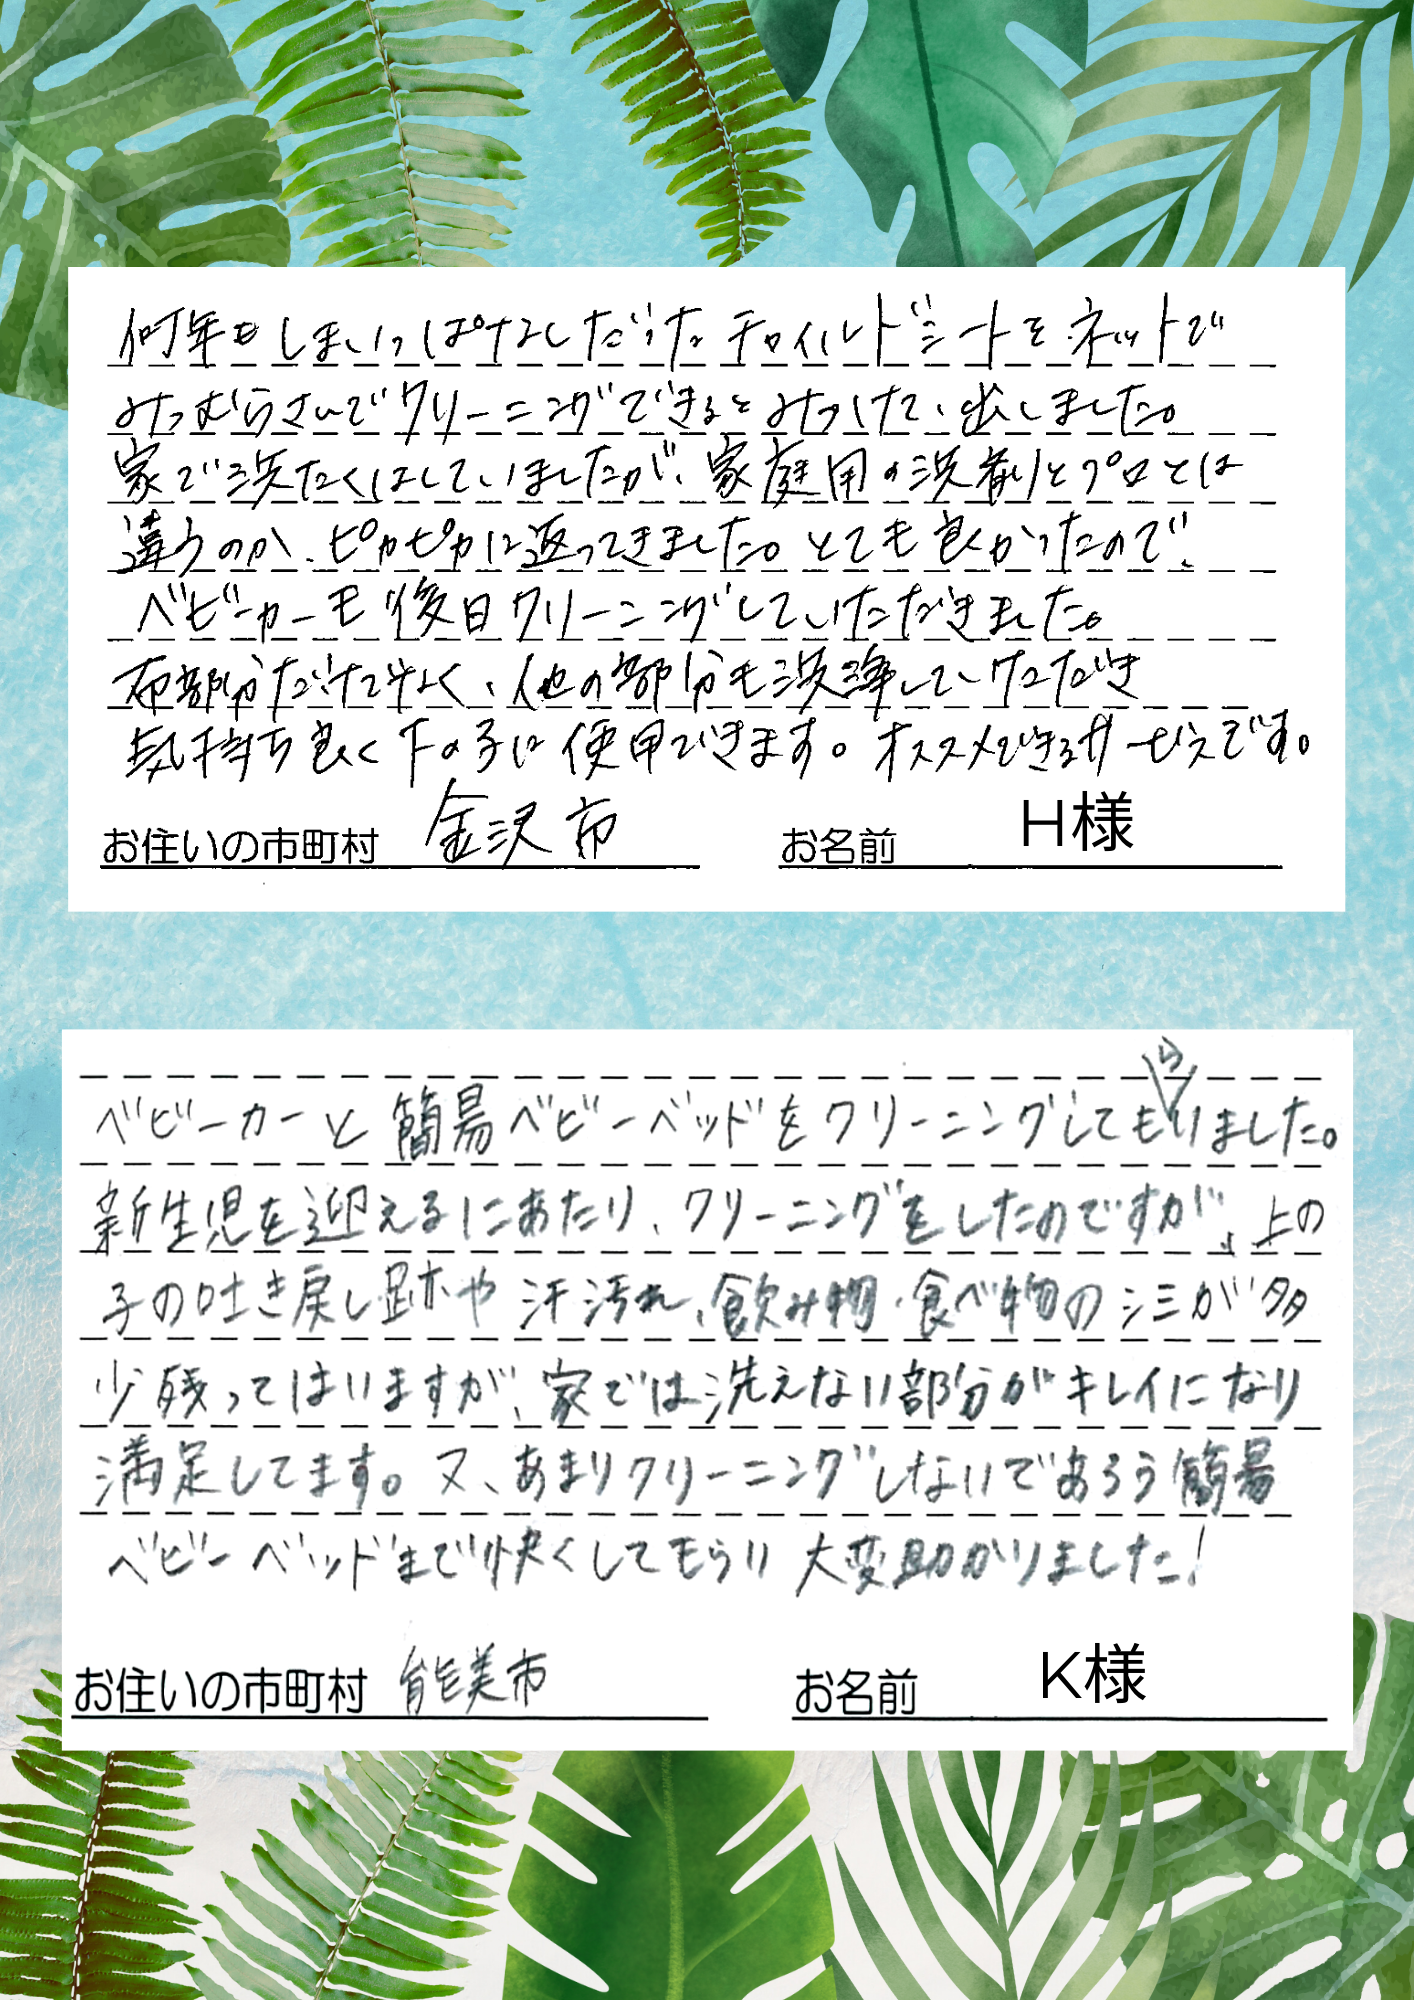 何年もしまいっぱなしだったチャイルドシートをネットで
みつむらさんでクリーニングできるとみつけて、出しました。
家で洗たくはしていましたが、家庭用の洗剤とプロとは
違うのか、ピカピカに返ってきました。とても良かったので、
ベビーカーも後日クリーニングしていただきました。
布部分だけでなく、他の部分も洗浄していただき
気持ち良く下の子に使用できます。オススメできるサービスです。
お住いの市町村 金沢市 お名前 H様
ベビーカーと簡易ベビーベッドをクリーニングしてもらいました。
新生児を迎えるにあたり、クリーニングをしたのですが、上の
子の吐き戻し跡や汗汚れ、飲み物・食べ物のシミが多
少残ってはいますが、家では洗えない部分がキレイになり
満足してます。又、あまりクリーニングしないであろう簡易
ベビーベッドまで快くしてもらい大変助かりました!
お住いの市町村 能美市 お名前 K様